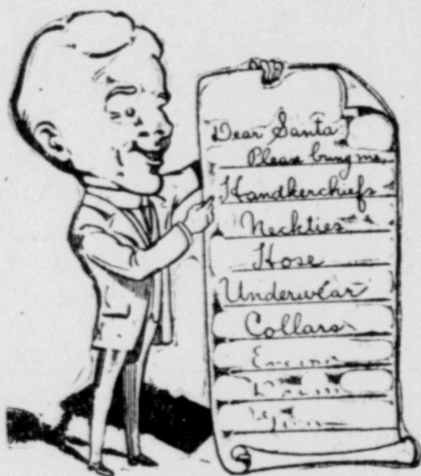 Dear Santa
Please bring me,
Handkerchiefs
Neckties
Hose
Underwear
Collars
Engine
Drum